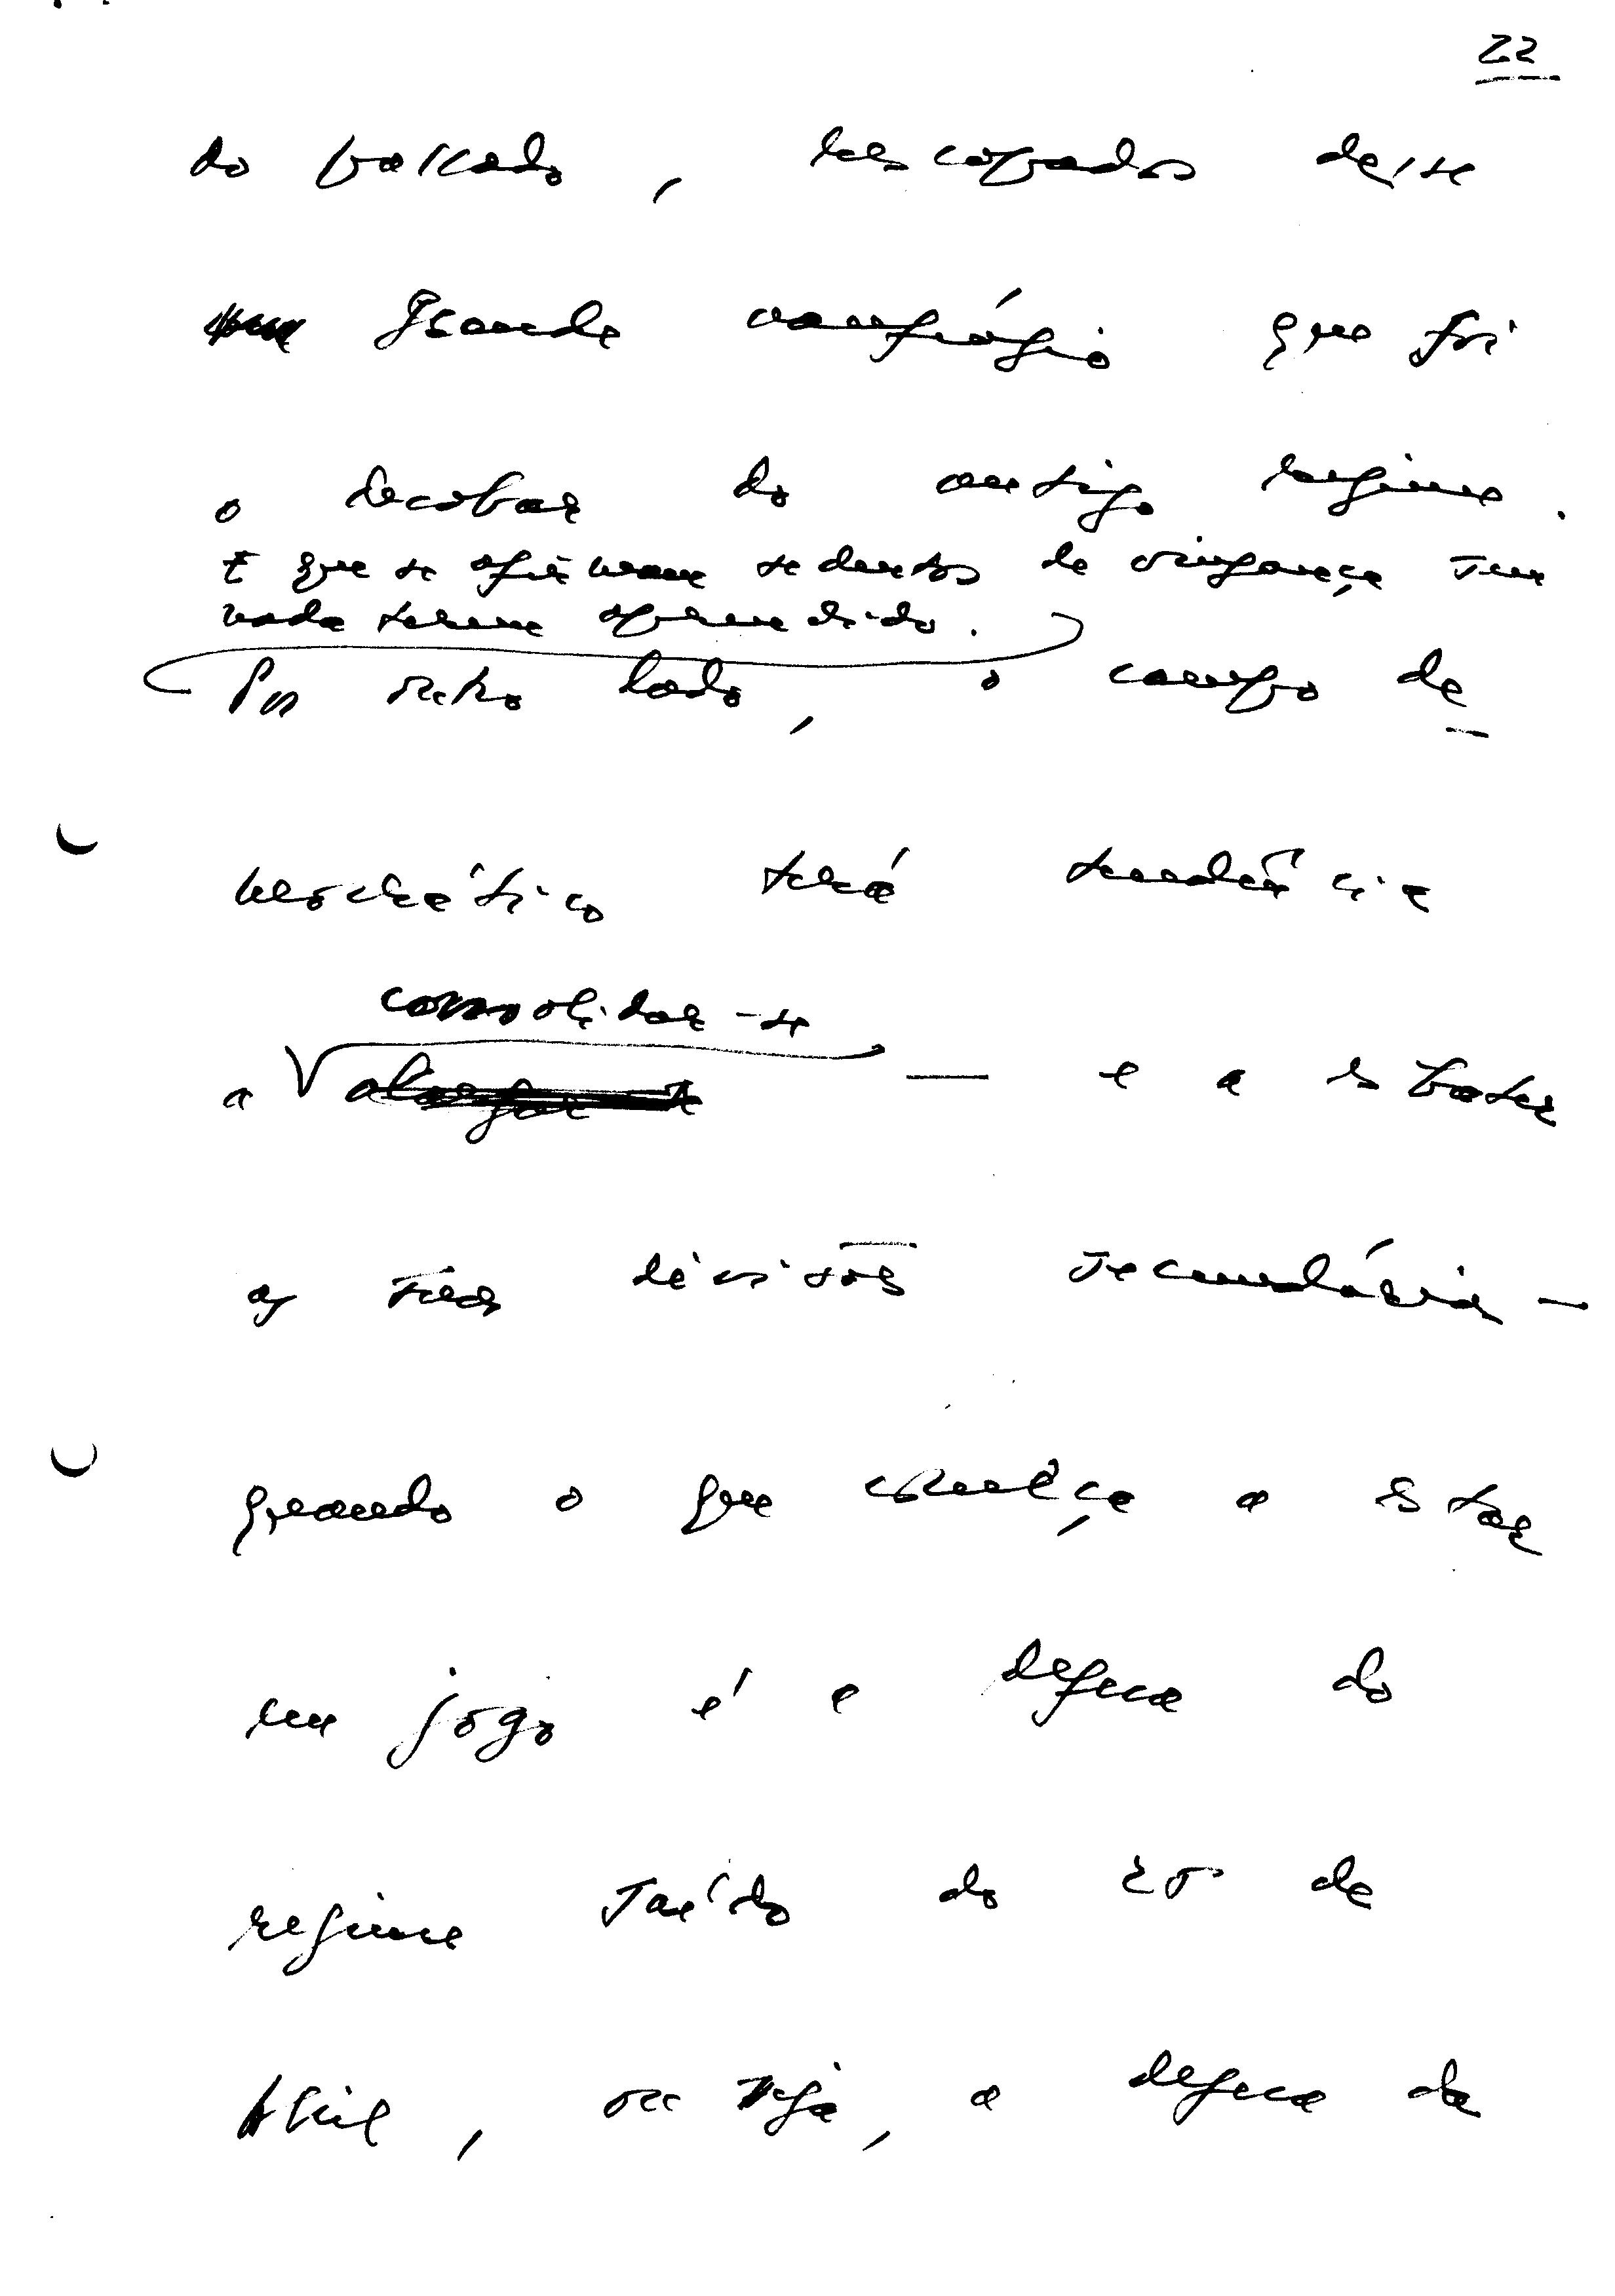 22
do passado, escapados desse
grande naufrágio que foi
o decobar do antigo regime.
E que se afirmam sedentos de vingança sem
nada terem aprendido.
Por outro lado, o campo de-
mocrático terá tendência
consolidar-se
a alargar-se — e a esbater
as suas divisões secundárias —
quando o que começa a estar
em jogo é a defesa do
regime saído do 25 de
Abril, ou seja, a defesa da